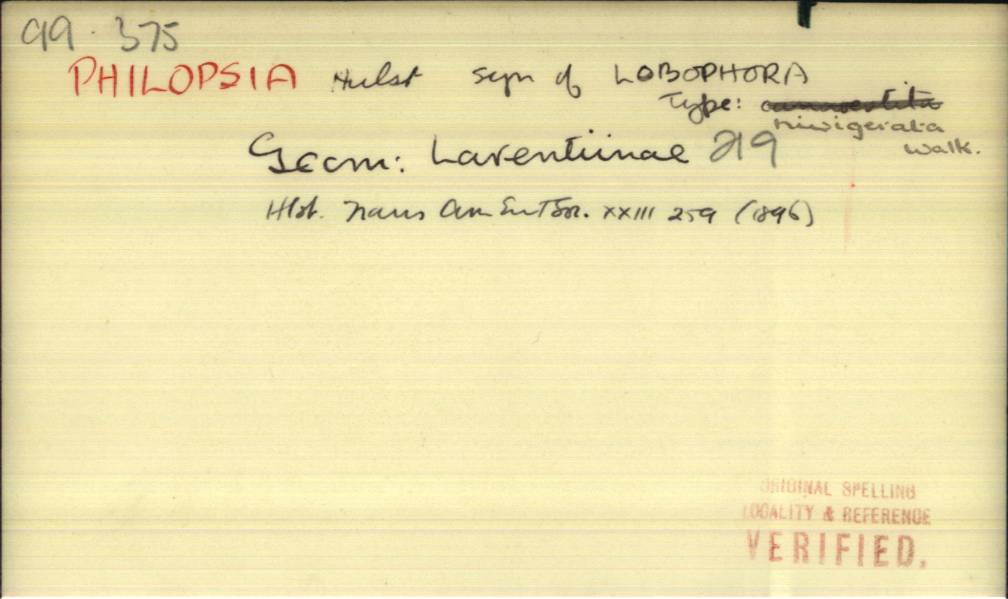 99.375
PHILOPSIA Hulst syn of LOBOPHORA
Type:
nivigerata
Walk.
Geom: Larentiinae 219
Hlst. Trans Am Ent Soc. XXIII 259 (1896)
ORIGINAL SPELLING
LOCALITY & REFERENCE
VERIFIED.